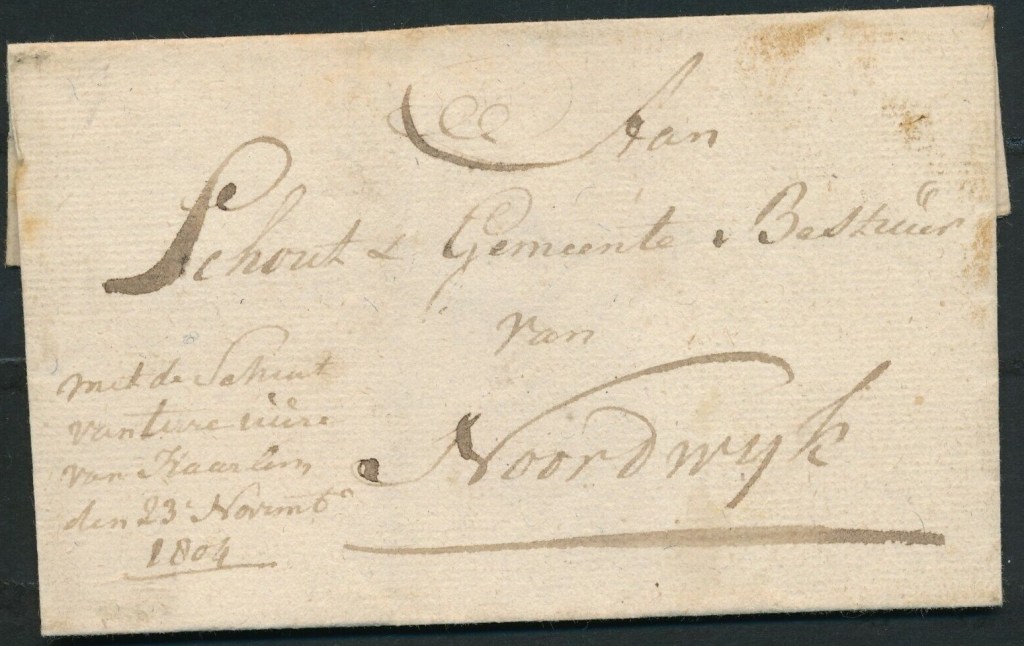 Aan
Schout & Gemeente Bestuur
van
Noordwyk
met de Schuit
van twee uure
van Haarlem
den 23 Novemb
1804